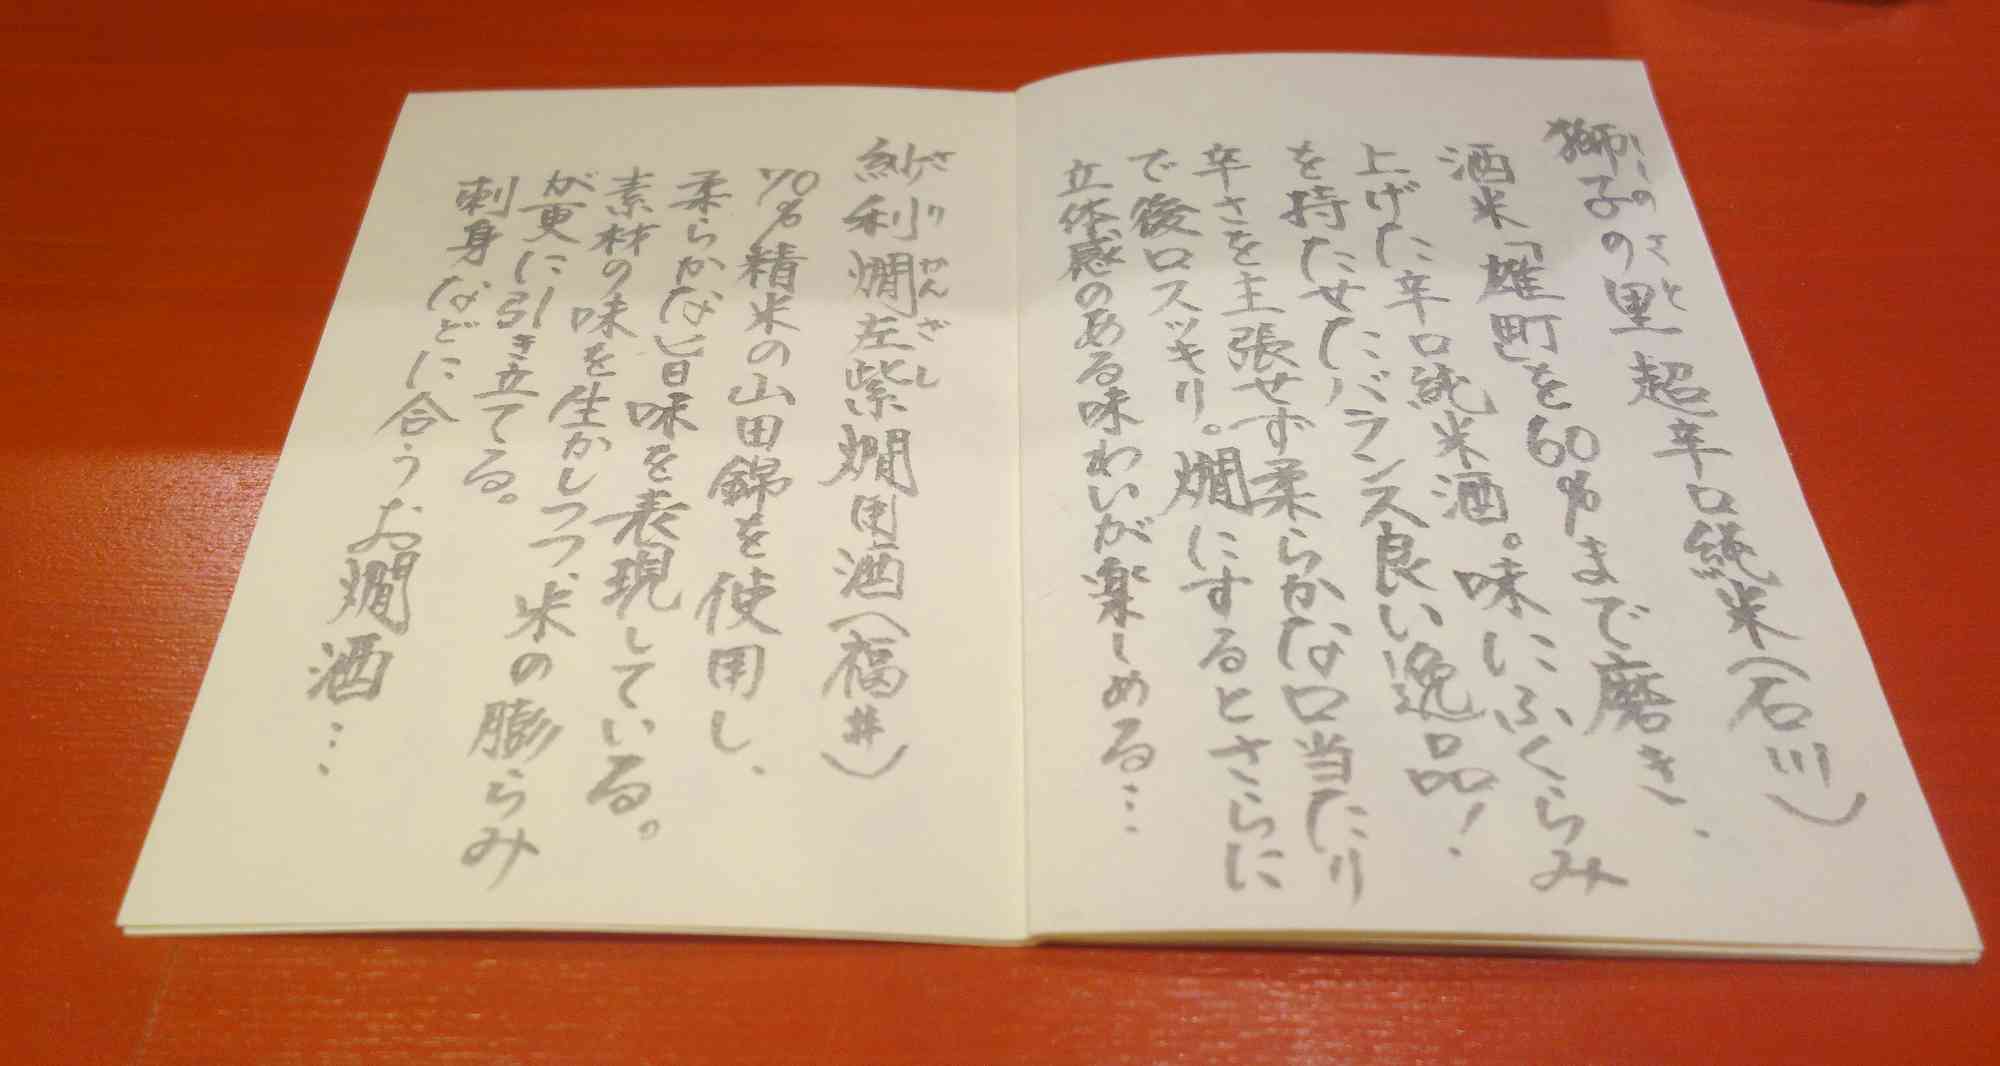 獅子の里 超辛口純米(石川)
しーのさと
酒米「雄町」を60%まで磨き、
上げた辛口純米酒。味にふくらみ
を持たせたバランス良い逸品!
辛さを主張せず柔らかな口当たり
で後口スッキリ。燗にするとさらに
立体感のある味わいが楽しめる…
紗利燗左紫燗用酒(福井)
さりかんざし
70%精米の山田錦を使用し、
柔らかな旨味を表現している。
素材の味を生かしつつ、米の膨らみ
が更に引き立てる。
刺身などに合うお燗酒…